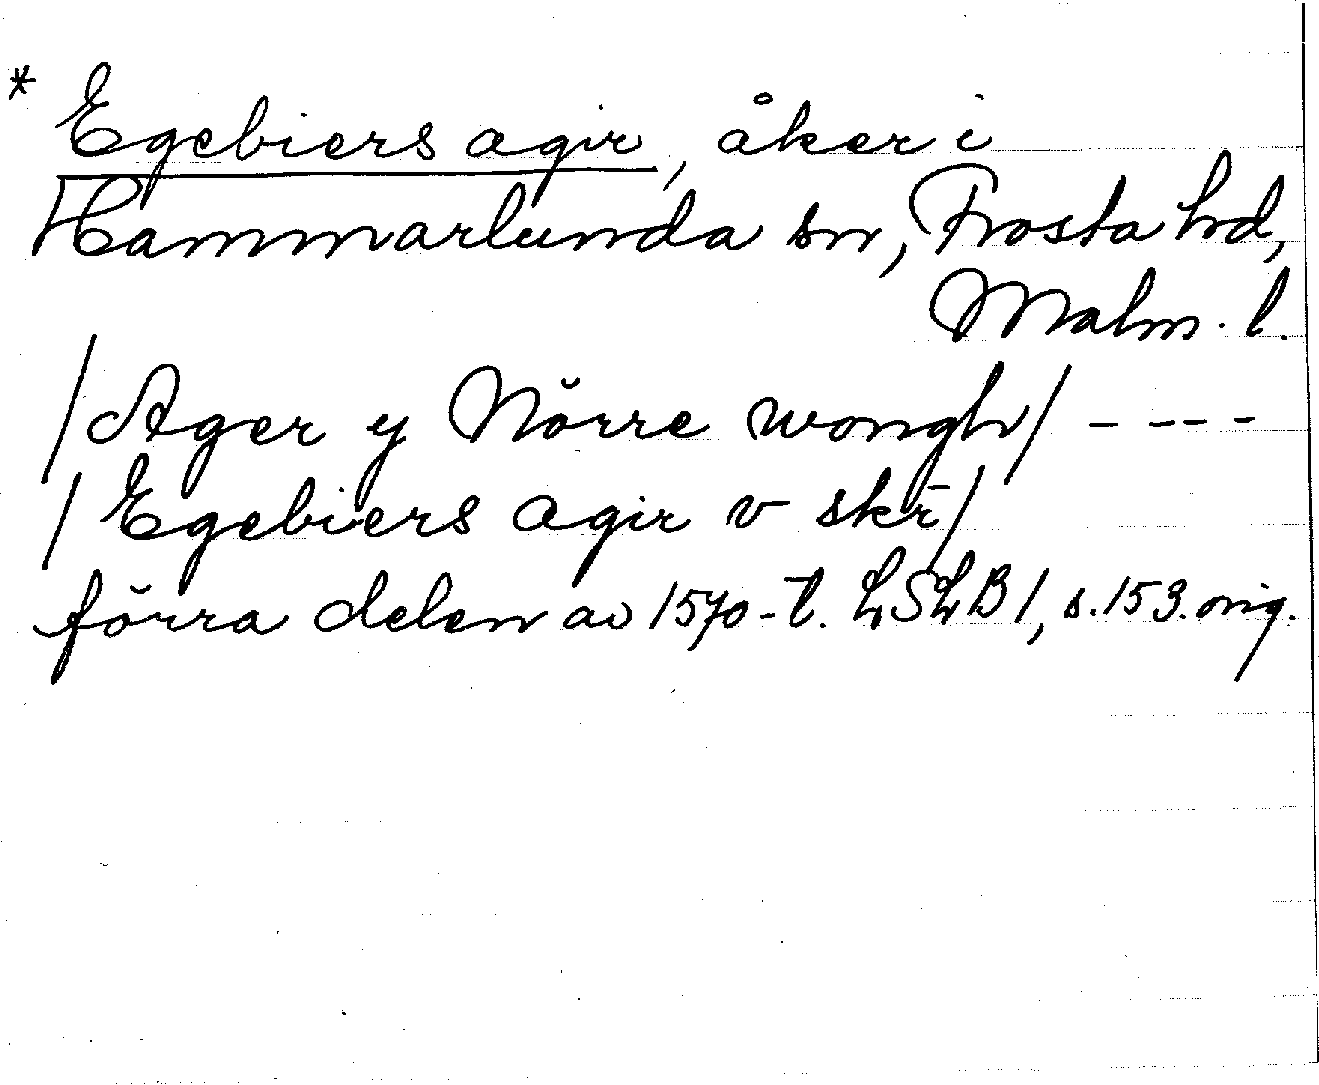 * Egebiers agir, åker i
Hammarlunda sn, Frosta hd,
Malm. l.
/Ager y Nŏrre wongh/ - - - -
/Egebiers agir v skr̄/
förra delen av 1570-t. LSLB 1, s. 153. orig.